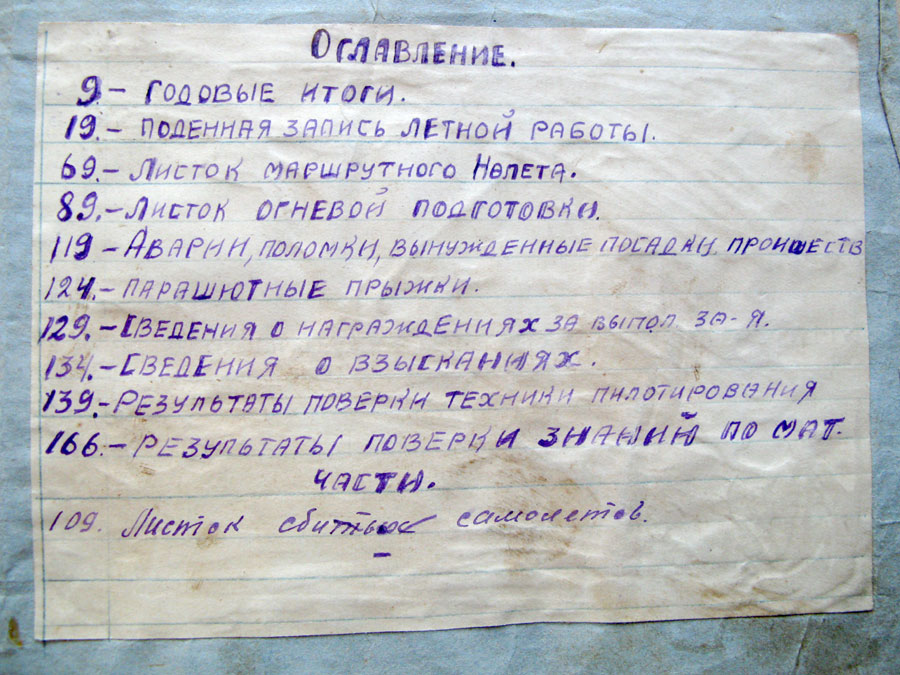 Оглавление.
9.- Годовые итоги.
19.- Поденная запись летной работы.
69.- Листок маршрутного Налета.
89.- Листок огневой подготовки.
119 - Аварии, поломки, вынужденные посадки, происшеств
124.- Парашютные прыжки.
129.- Сведения о награждениях за выпол. за-я.
134.- Сведения о взысканиях.
139.- Результаты поверки техники пилотирования
166.- Результаты поверки знаний по мат.
части.
109. Листок сбитых самолетов.